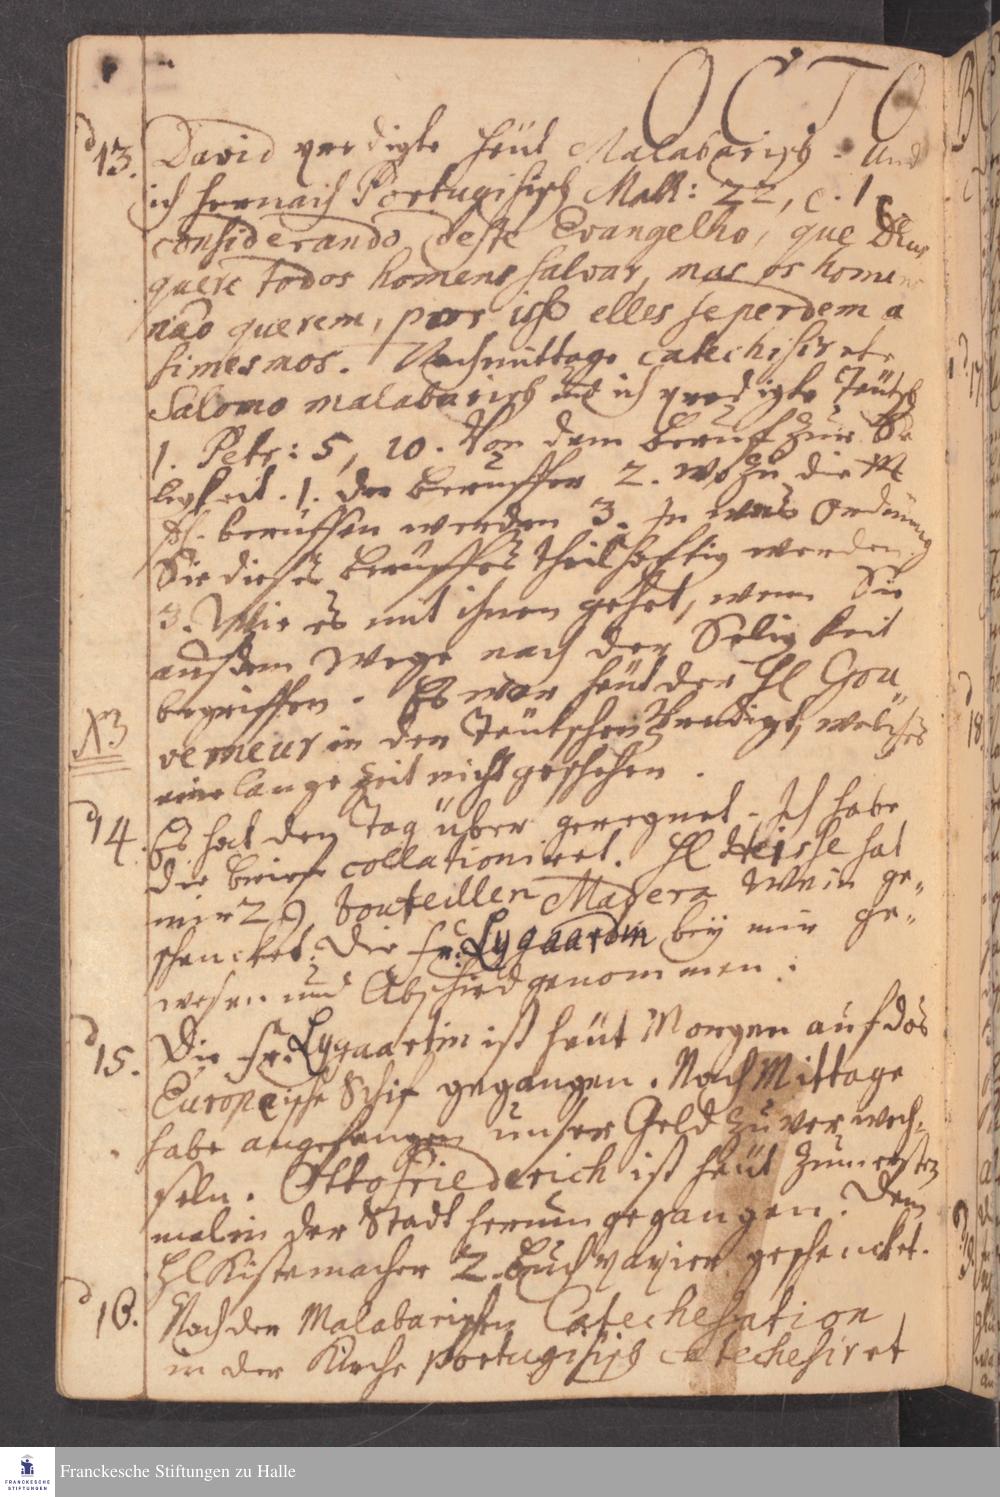 OCTO
d 13. David predigte heüt Malabarisch. und
ich hernach Portugisisch Matth: 22, c. 1
considerando deste Evangelho, que Deus
quere todos homens salvar, mas os homens
não querem, pors isso elles se perdem a
simesmos. Nachmittage catechisirete
Salomo malabarisch und ich predigte Teütsch
1. Petr: 5, 10. Von dem Beruf zur Se
ligkeit. 1. der Beruffer 2. wozu die M
sch. beruffen werden 3. In was Ordnung
Sie dieses Beruffes theilhafftig werden.
3. Wie es mit ihnen gehet, wenn Sie
auf dem Wege nach der Seligkeit
begriffen. Es war heüt der Hl Gou
N3
verneur in der Teütschen Predigt, welches
eine lange Zeit nicht geschehen.
d 14. Es hat den Tag über geregnet. Ich habe
die briefe collationiret. Hl Heisse hat
mir 29 bouteillen Madera Wein ge-
schencket. Die Fr: Lygaardin bey mir ge-
wesen und Abschied genommen.
d 15. Die Fr. Lygaartin ist heüt Morgen auf das
Europaeische Schif gegangen. Nach Mittage
habe angefangen unser Geld zu verwech-
seln. Otto Friederich ist heüt zum ersten
mal in der Stadt herum gegangen. Dem
Hl Kistenmacher 2. Buch papier geschencket.
d 16. Nach der Malabarischen Catechesation
in der Kirche portugisisch catechesiret
Franckesche Stiftungen zu Halle
FRANCKESCHE
STIFTUNGEN